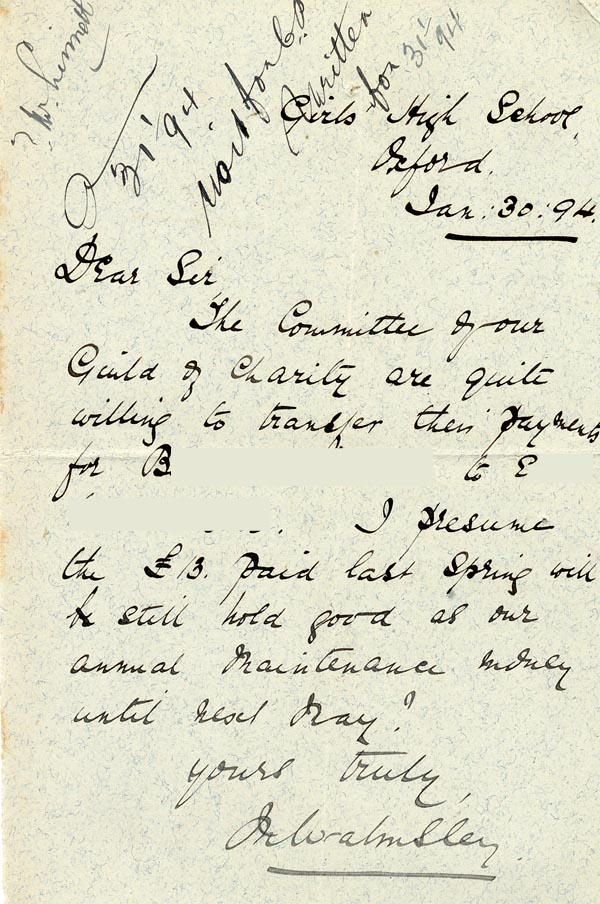 31/1 94
written
for 31/1 94
Girls' High School,
Oxford.
Jan: 30: 94.
Dear Sir
The Committee of our
Guild of Charity are quite
willing to transfer their payments
for B to E
. I presume
the £13. paid last Spring will
be still hold good as our
annual Maintenance money
until next May?
yours truly,
Walmsley